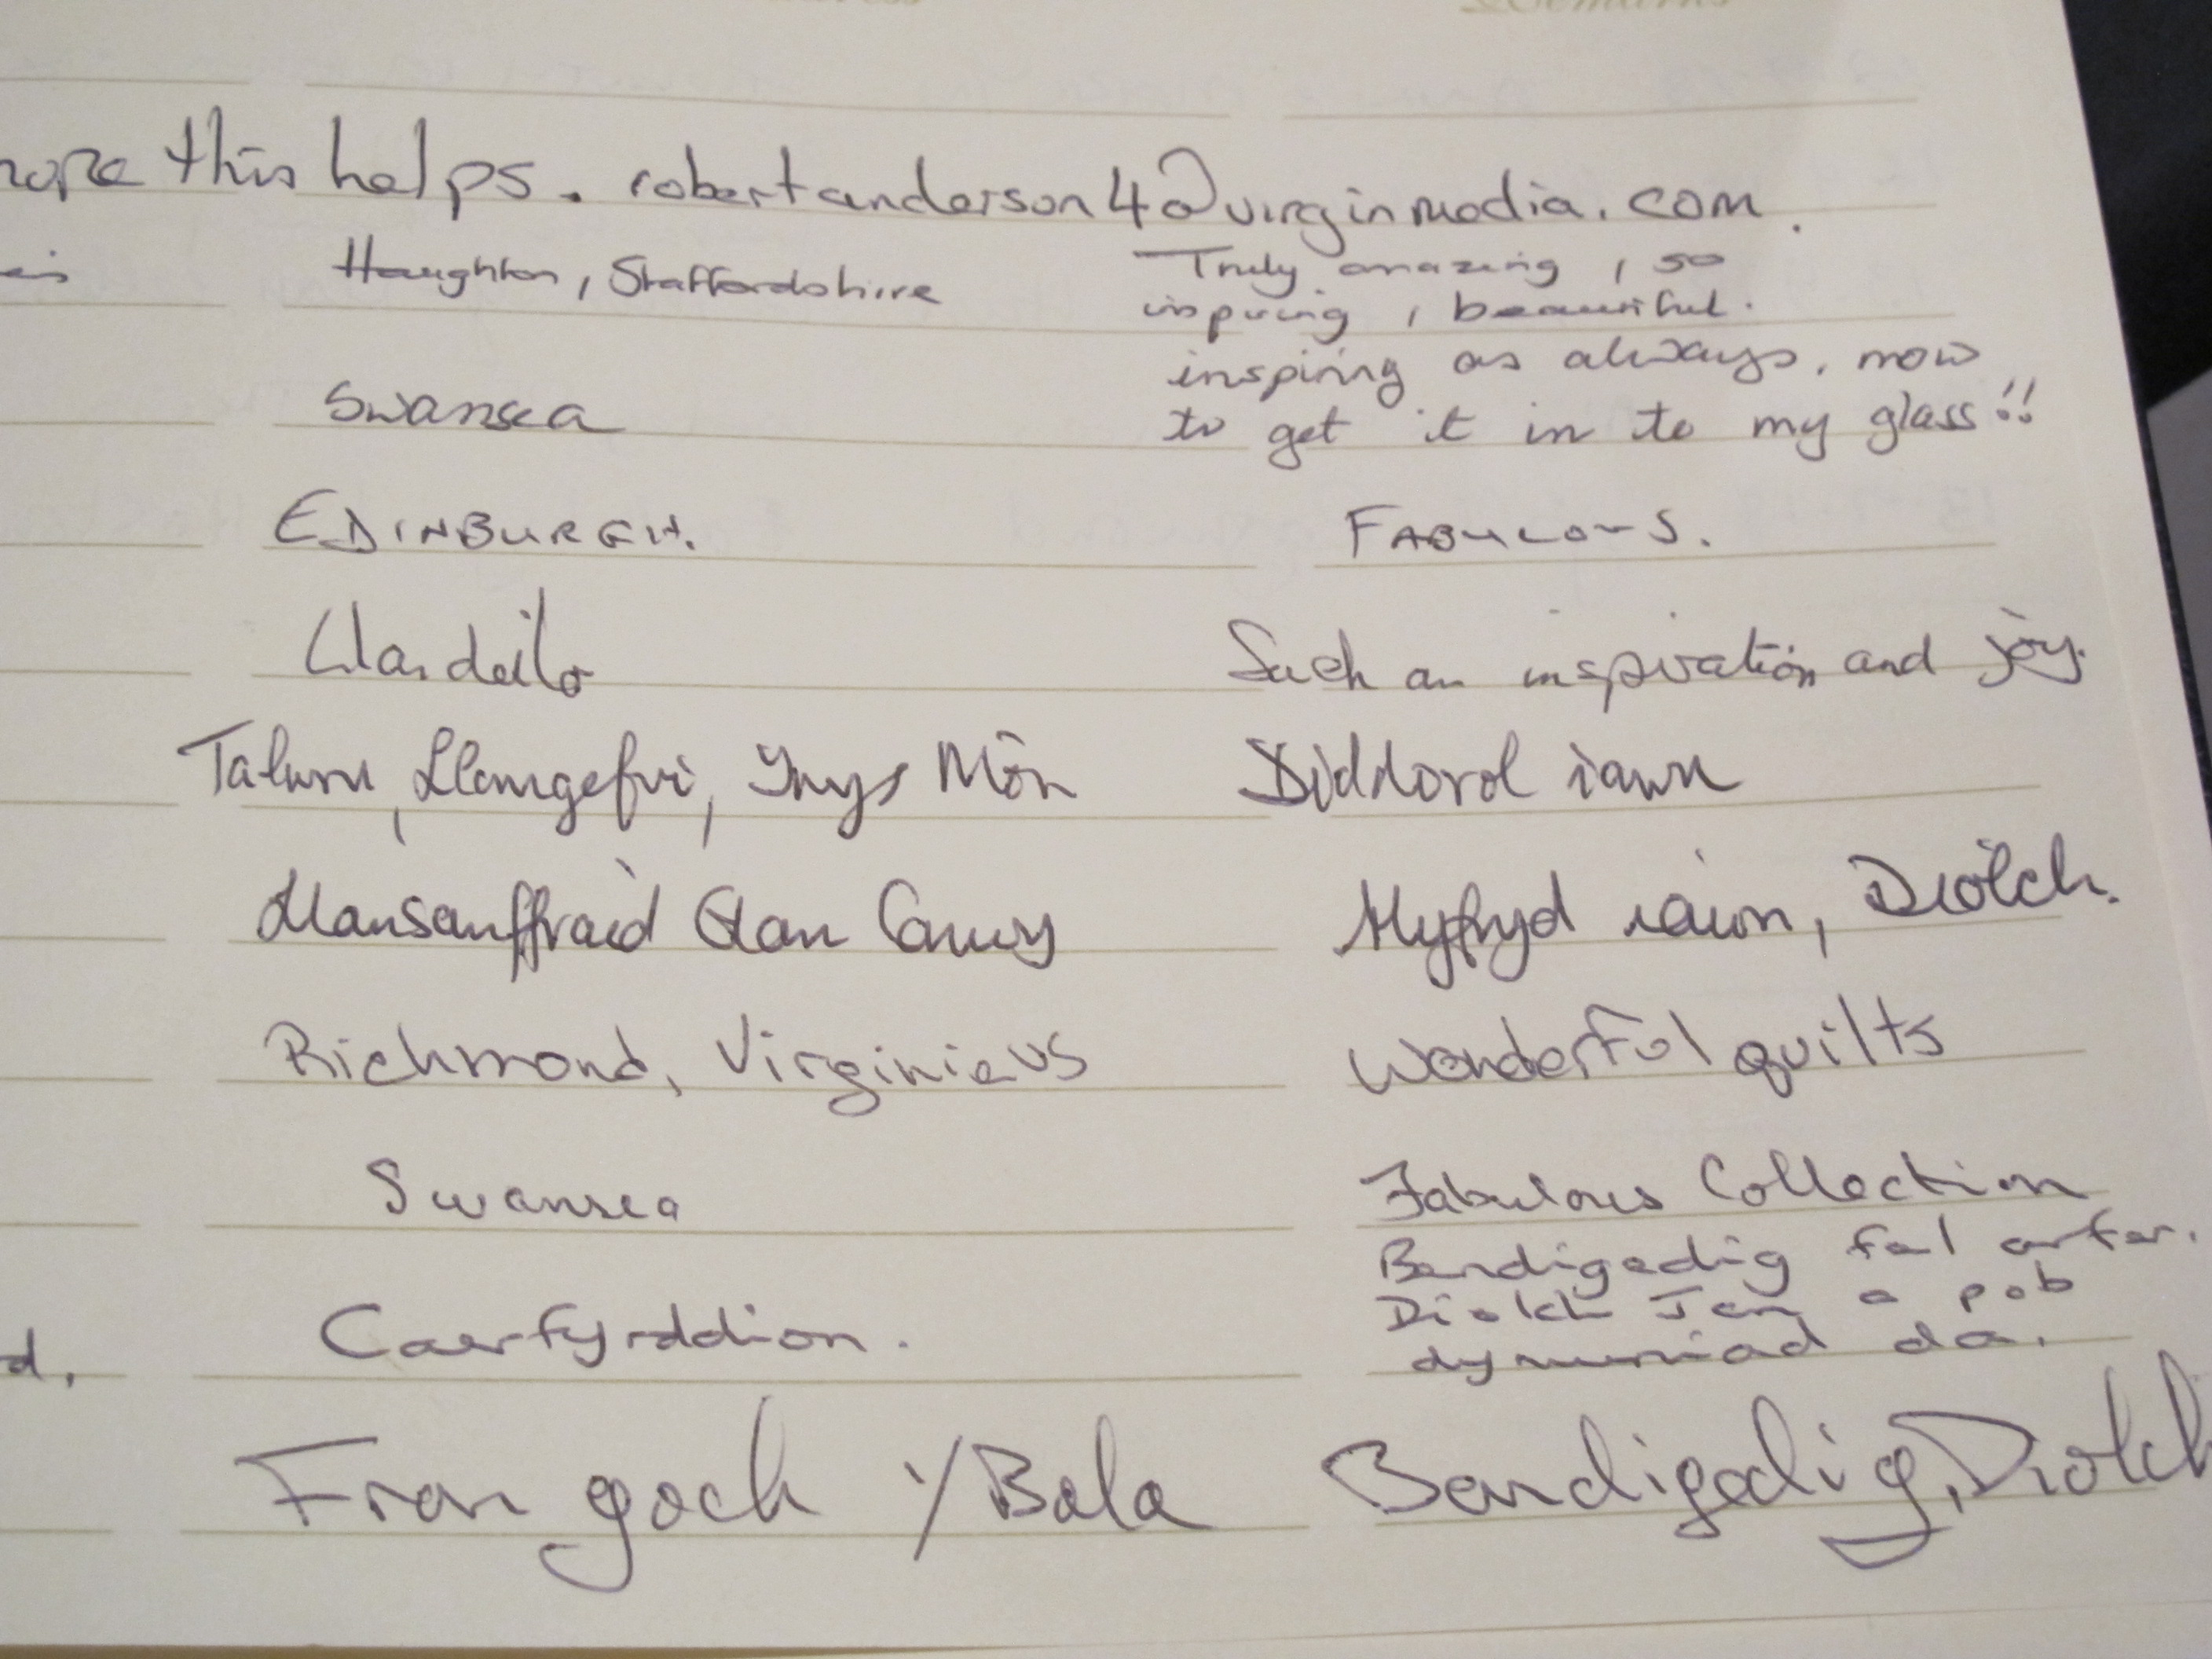 hope this helps. robertanderson4@virginmedia.com.
Haughton, Staffordshire
Truly amazing, so
inspiring, beautiful.
Swansea
inspiring as always, now
to get it in to my glass!!
EDINBURGH.
FABULOUS.
Llandeilo
Such an inspiration and joy.
Talwrn, Llangefni, Ynys Môn
Diddorol iawn
Llansanffraid Glan Conwy
Hyfryd iawn, Diolch.
Richmond, Virginia US
Wonderful quilts
Swansea
Fabulous Collection
Caerfyrddion.
Bendigedig fel arfer.
Diolch Jen a pob
dymuniad da.
d.
Fron goch Y/Bala
Bendigedig, Diolch